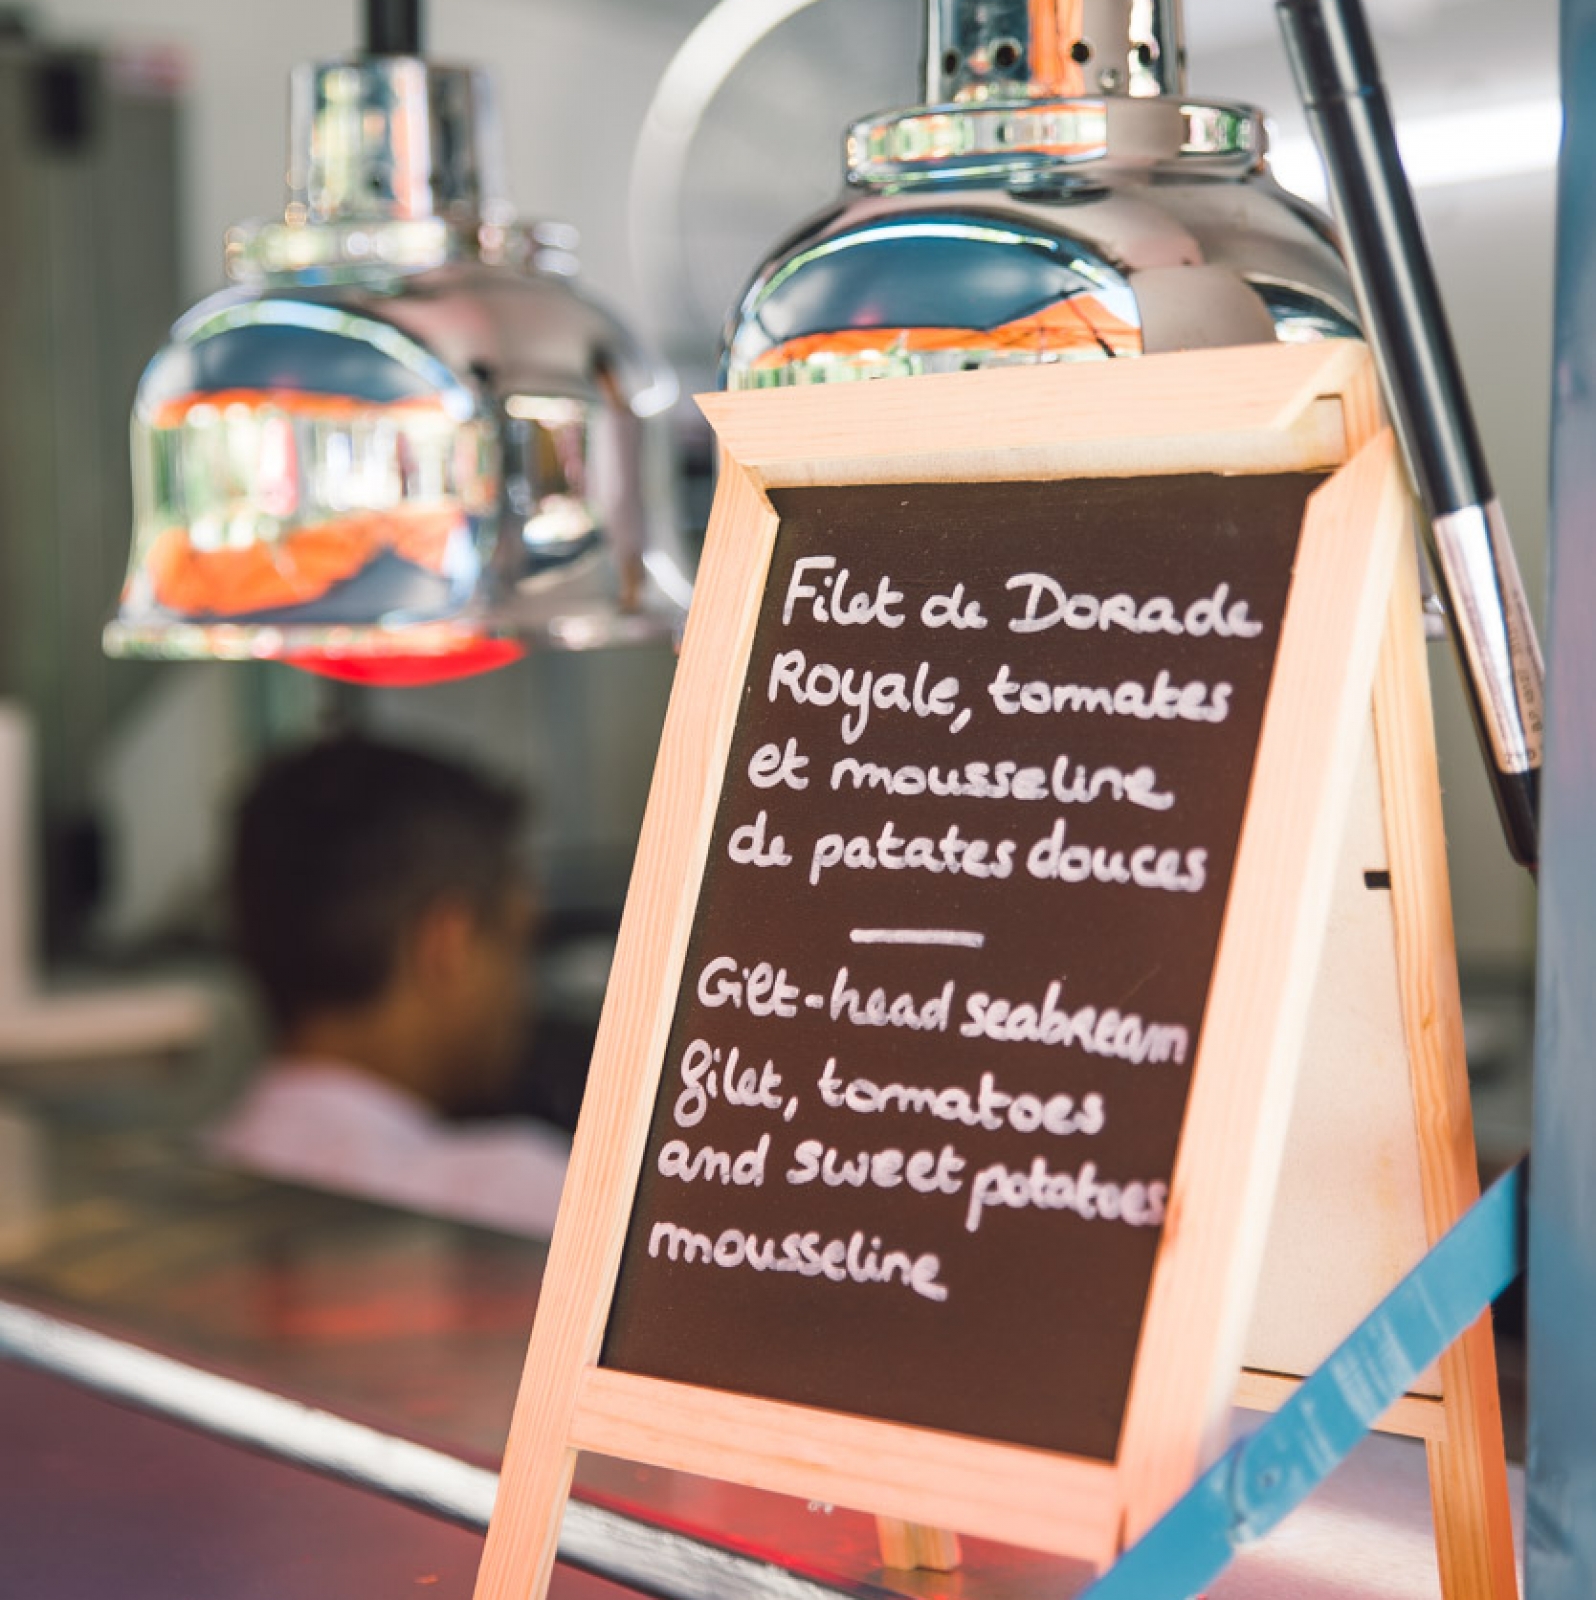 Filet de Dorade
Royale, tomates
et mousseline
de patates douces
Gilt-head seabream
filet, tomatoes
and sweet potatoes
mousseline